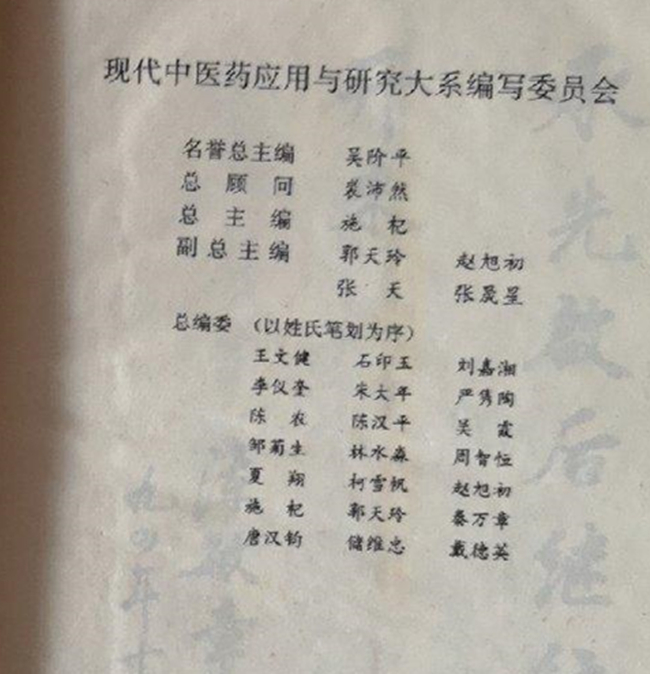 现代中医药应用与研究大系编写委员会
名誉总主编 吴阶平
总顾问 裘沛然
总主编 施杞
副总主编 郭天玲 赵旭初
张天 张晟星
总编委 (以姓氏笔划为序)
王文健 石印玉 刘嘉湘
李仪奎 朱大年 严隽陶
陈农 陈汉平 吴霞
邹菊生 林水淼 周智恒
夏翔 柯雪帆 赵旭初
施杞 郭天玲 秦万章
唐汉钧 储维忠 戴德英
承先启后继
九〇年十